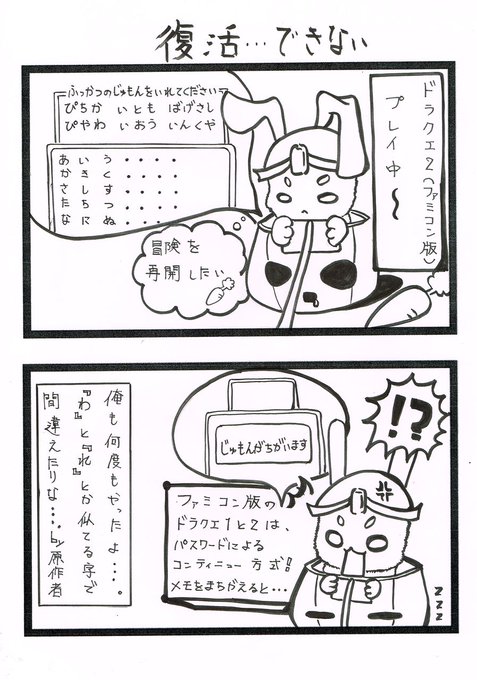 復活…できない
ドラクエ2(ファミコン版)
プレイ中〜
ふっかつのじゅもんをいれてください
ぴちか いとも ばげさし
ぴやわ いおう いんくや
あ い う ・・・・
か き く ・・・・
さ し す ・・・・
た ち つ ・・・・
な に ぬ ・・・・
冒険を
再開したい
!?
じゅもんがちがいます
ファミコン版の
ドラクエ1と2は、
パスワードによる
コンティニュー方式!
メモをまちがえると…
俺も何度もやったよ…。
『わ』と『れ』とか似てる字で
間違えたりな…。by原作者
zzz